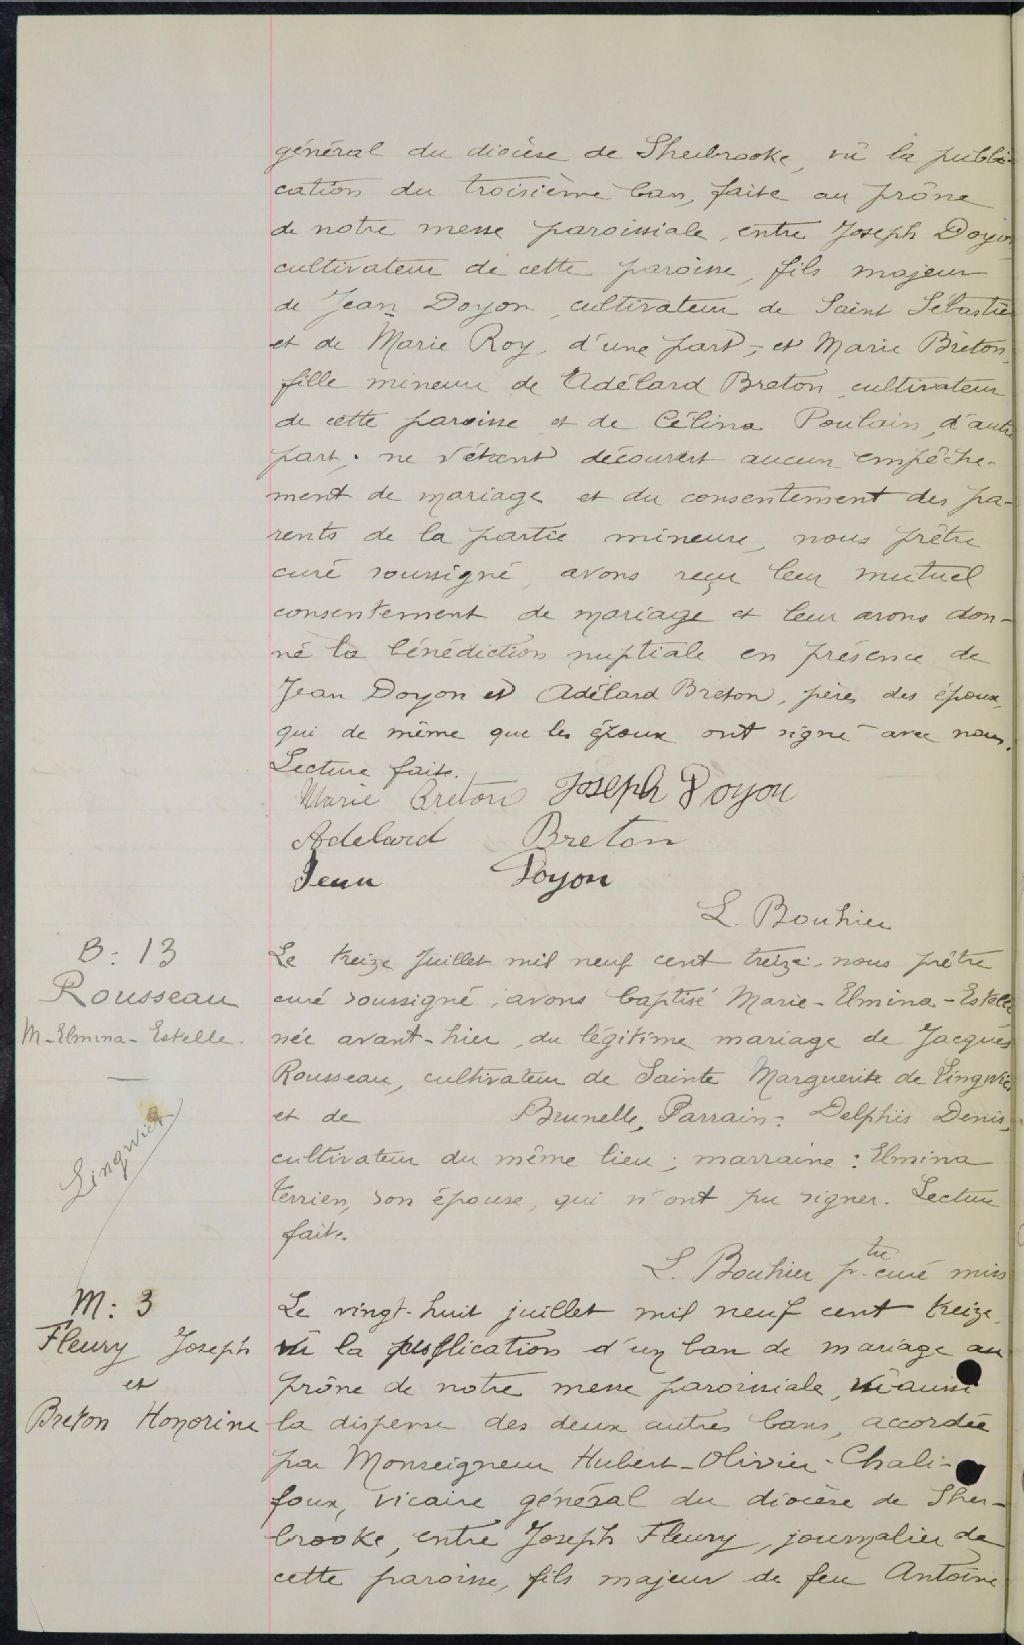 général du diocèse de Sherbrooke, vû la publi-
cation du troisième ban, faite au prône
de notre messe paroissiale, entre Joseph Doyon
cultivateur de cette paroisse, fils majeur
de Jean Doyon, cultivateur de Saint Sébastie
et de Marie Roy, d'une part, et Marie Breton,
fille mineure de Adélard Breton, cultivateur
de cette paroisse et de Célina Poulain, d'autre
part; ne s'étant découvert aucun empêche-
ment de mariage et du consentement des pa-
rents de la partie mineure, nous prêtre
curé soussigné, avons reçu leur mutuel
consentement de mariage et leur avons don-
né la bénédiction nuptiale en présence de
Jean Doyon et Adélard Breton, pères des époux,
qui de même que les époux ont signé avec nous.
Lecture faite.
Marie Breton Joseph Doyon
Adelard Breton
Jean Doyon
L. Bouhier
B: 13
Rousseau
M-Elmina-Estelle.
Lingwick
Le treize Juillet mil neuf cent treize, nous prêtre
curé soussigné, avons baptisé Marie-Elmina-Estelle
née avant-hier, du légitime mariage de Jacques
Rousseau, cultivateur de Sainte Marguerite de Lingwick
et de Brunelle, Parrain: Delphis Denis,
cultivateur du même lieu; marraine: Elmina
Terrien, son épouse, qui n'ont pu signer. Lecture
faite.
L. Bouhier ptre curé miss
M: 3
Fleury Joseph
et
Breton Honorine
Le vingt-huit juillet mil neuf cent treize,
vû la publication d'un ban de mariage au
prône de notre messe paroissiale, vû aussi
la dispense des deux autres bans, accordée
par Monseigneur Hubert-Olivier-Chali-
foux, vicaire général du diocèse de Sher-
brooke, entre Joseph Fleury, journalier de
cette paroisse, fils majeur de feu Antoine